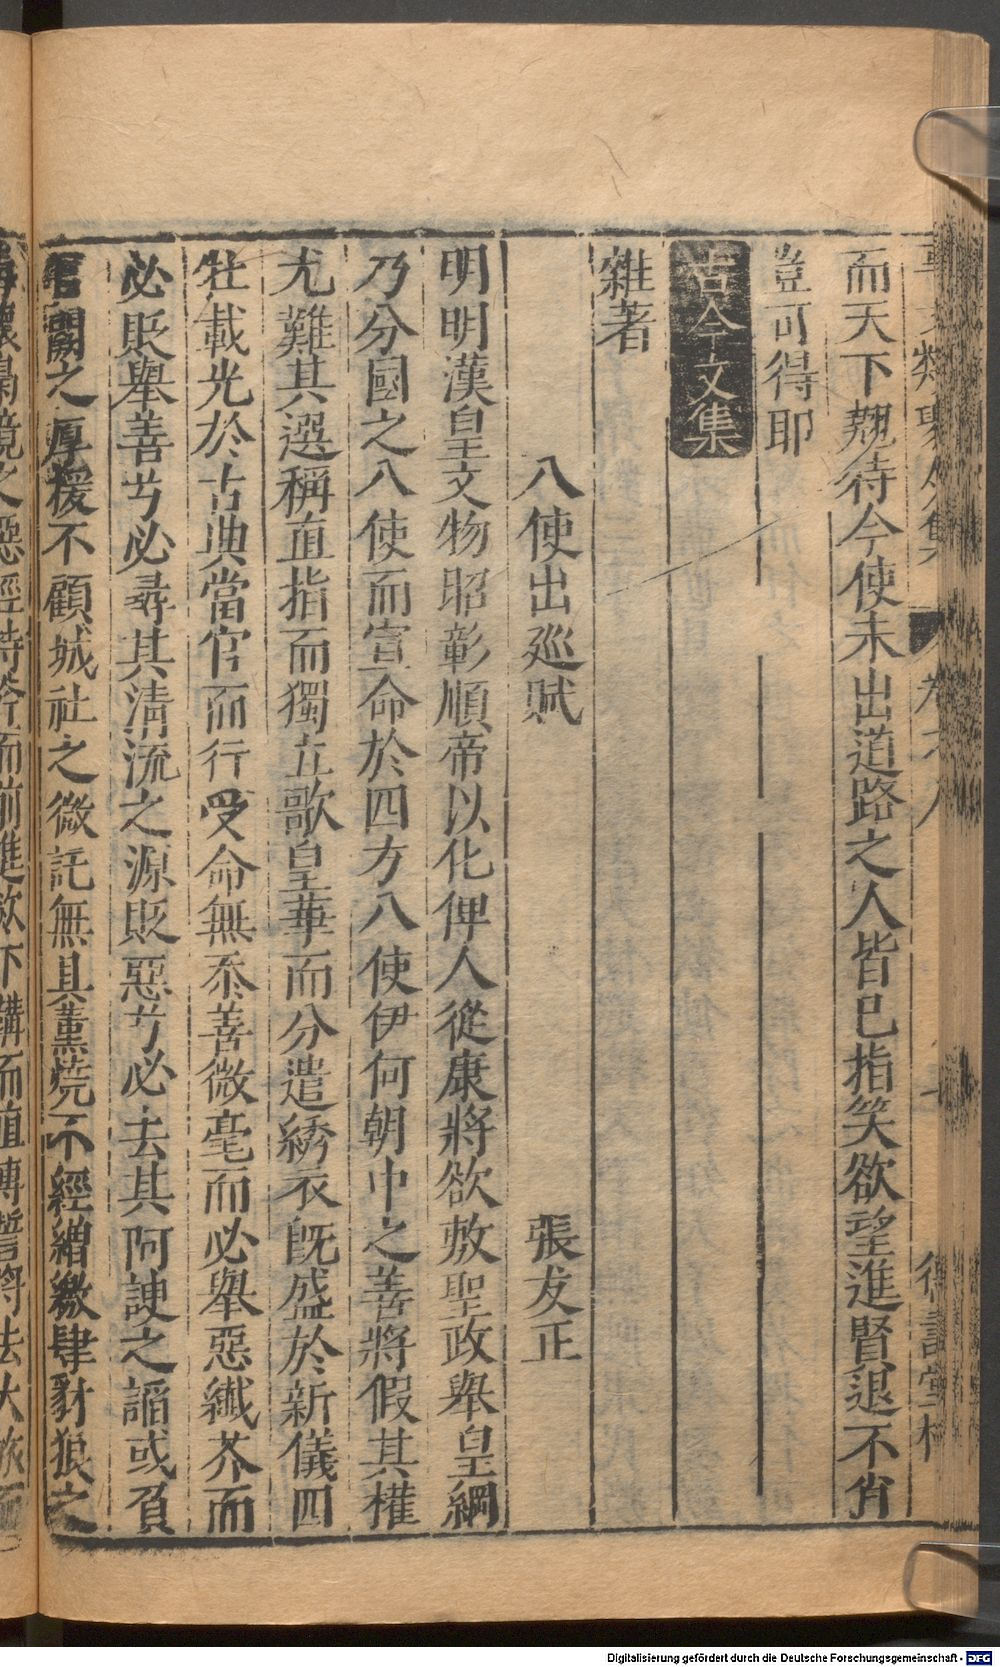 而天下翹待今使未出道路之人皆已指笑欲望進賢退不肖
豈可得耶
古今文集
雜著
八使出廵賦 張友正
明明漢皇文物昭彰順帝以化俾人從康將欲敷聖政舉皇綱
乃分國之八使而宣命於四方八使伊何朝中之善將假其權
尤難其選稱直指而獨立歌皇華而分遣綉衣既盛於新儀四
牡載光於古典當官而行受命無忝善微毫而必舉惡纖芥而
必貶舉善芳必尋其淸流之源貶惡芳必去其阿諛之謟或負
之厚援不顧城社之微託無具薰燒不經繒繳肆豺狼之
Digitalisierung gefördert durch die Deutsche Forschungsgemeinschaft - DFG